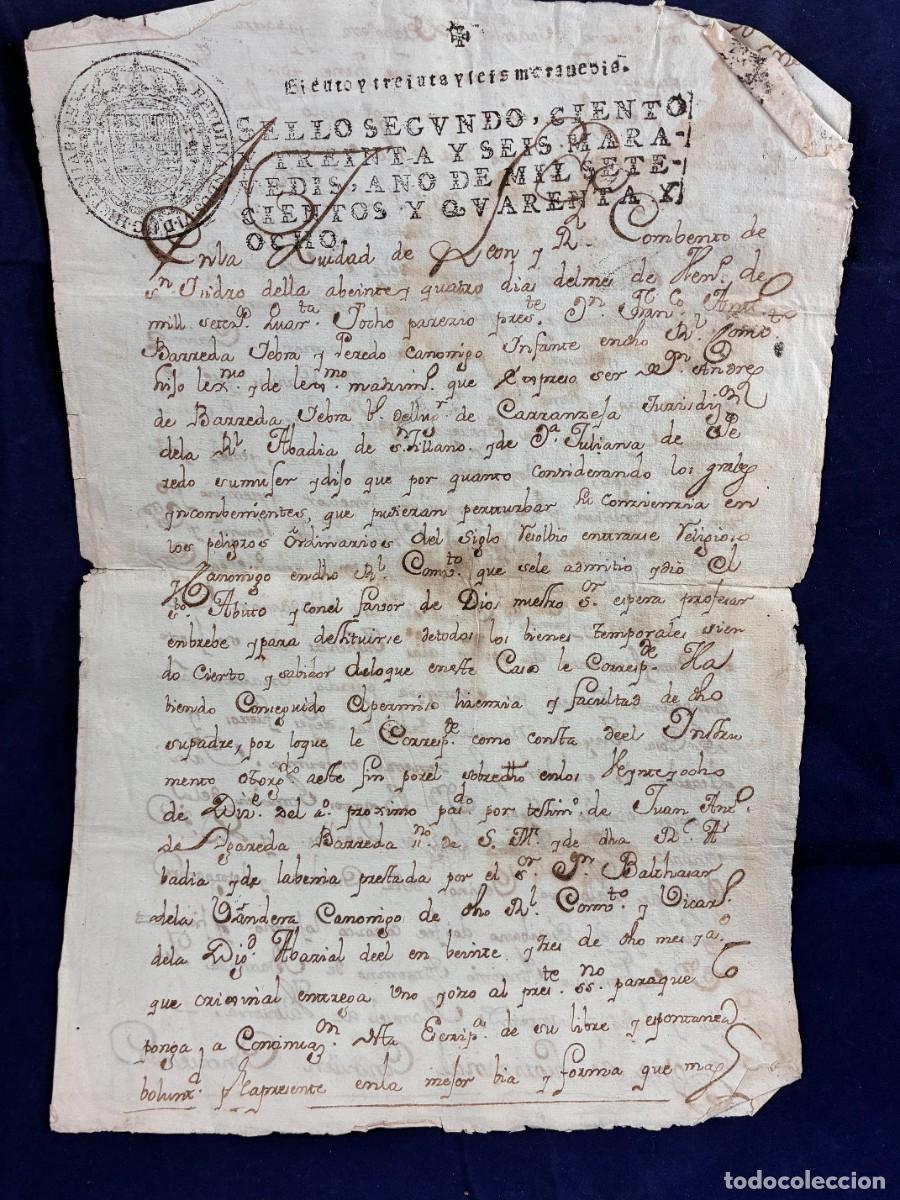 Ciento y treinta y seis maravedis.
SELLO SEGVNDO, CIENTO
Y TREINTA Y SEIS MARA-
VEDIS, AÑO DE MIL SETE-
CIENTOS Y QVARENTA Y
OCHO.
Enla Ciudad de Leon y Rl. Combento de
Sn. Isidro della abeinte y quatro dias del mes de Hen.º de
mill seteos. quarta. y ocho parezio preste. Dn. Franco. Antº.
Barreda Yebra y Peredo canonigo Infante en dho Rl. Comto.
hijo lexmo. y de lexmo. matrim.º que expreso ser de Dn. Andres
de Barreda Yebra vº. del lugr. de Carranzeja Jurisdizon.
dela Rl. Abadia de Sn.tillano y de Dª. Juliana de Pe
redo su muger y dijo que por quanto considerando los grabes
yncombenientes, que pudieran perturbar su conzienzia en
los peligros ordinarios del Siglo resolbio entrarse Religioso
y Canonigo en dho Rl. Comto. que se le admitio y dio el
Sto. Abito y con el favor de Dios nuestro Sr. espera profesar
en brebe y para destituirse de todos los bienes temporales sien
do Cierto y sabidor de lo que en este Caso le Correspde. Ha
biendo Conseguido el permiso lizenzia y facultad de dho
su padre, por lo que le Correspde. como consta de el Instru
mento otorgdo. a este fin por el sobredho en los Veynte y ocho
de Dize. del aº. proximo pasdo. por testim.º de Juan Antº.
de Ygareda Barreda nº. de S. M. y de dha Rl. A
badia y de la benia prestada por el Sr. Dn. Balthasar
de la Vandera Canonigo de dho Rl. Comto. y Vicarº.
de la Dioº. Abazial de el en beinte y tres de dho mes y aº.
que original entrega uno y otro al preste. ssno. para que lo
ponga a Continuazon. desta Escripª. de su libre y espontanea
boluntd. por la presente en la mejor bia y forma que mas
todocoleccion